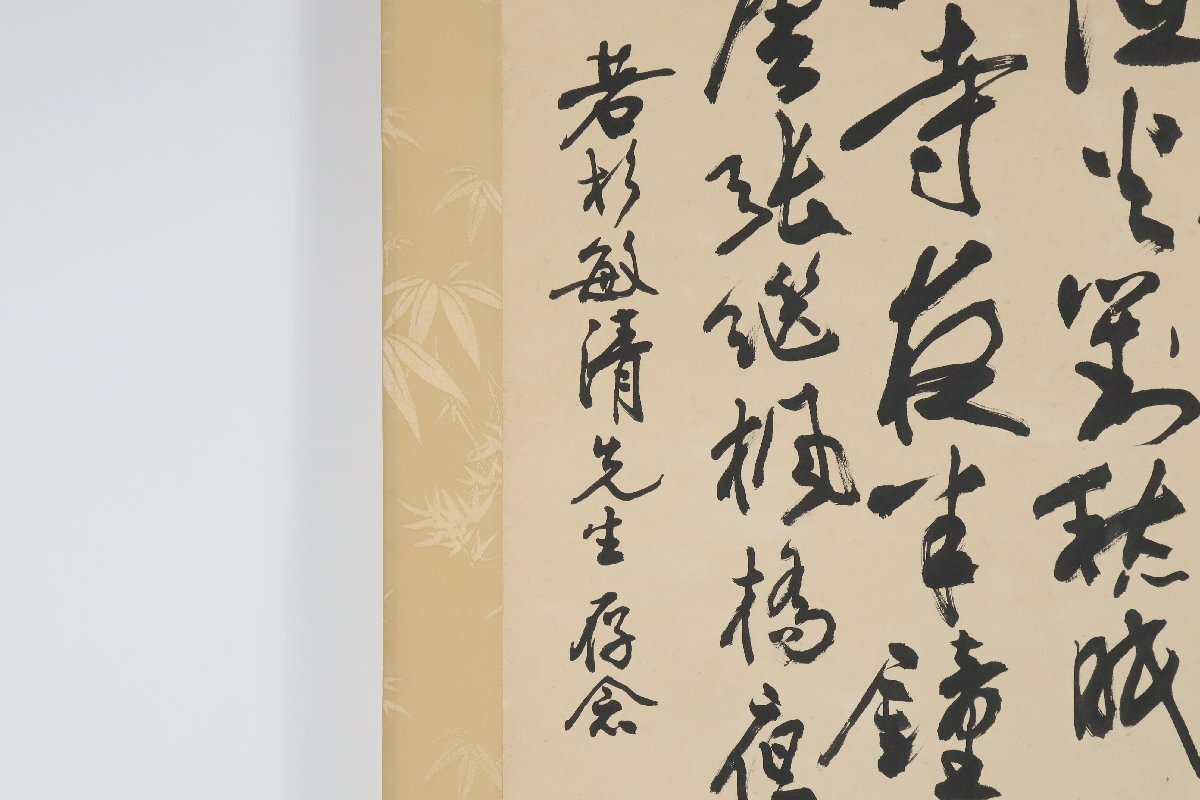 火對愁眠
寺夜半鐘
唐張繼楓橋夜
若杉敏清先生存念